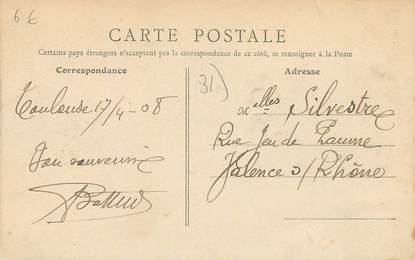 66
CARTE POSTALE
Certains pays étrangers n'acceptant pas la correspondance de ce côté, se renseigner à la Poste
Correspondance
Toulouse 17/4-08
Bon souvenir
31)
Adresse
Melles Silvestre
Rue Jeu de Paume
Valence s/Rhône